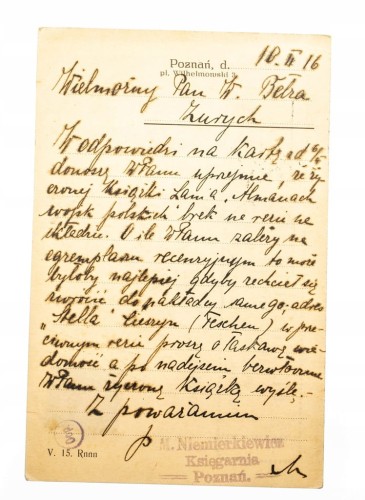 Poznań, d. 18.II 16
pl. Wilhelmowski 3.
Wielmożny Pan W. Betra
Zurych
W odpowiedzi na kartę od 6/II
donoszę WPanu uprzejmie, że ży
czonej książki Lania „Almanach
wojsk polskich brak na razie na
składzie. O ile WPanu zależy na
egzemplarzu recenzyjnym to może
byłoby najlepiej gdyby zechciał się
zwrócić do nakładcy samego, adres
„Stella" Cieszyn (Teschen) w prze
ciwnym razie proszę o łaskawą wia
domość a po nadejściu bezwłocznie
WPanu życzoną książkę wyślę.-
Z poważaniem
p
M. Niemierkiewicz
Księgarnia
Poznań.
V. 15. Rnnn